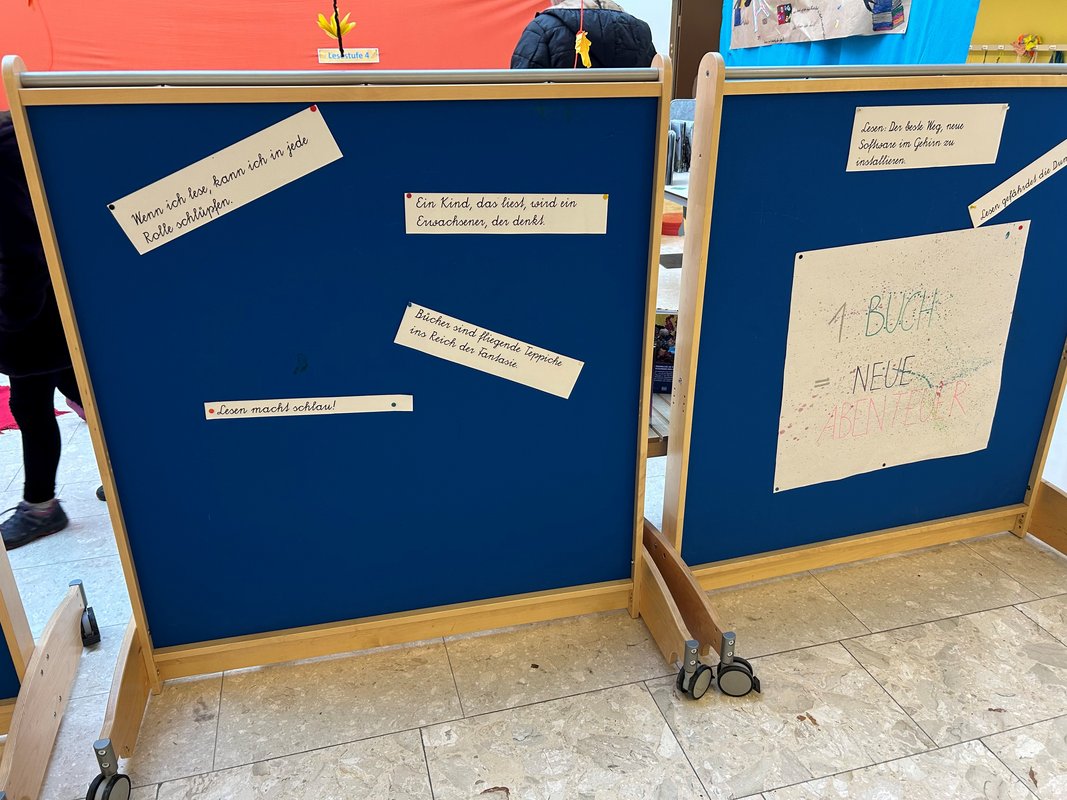 Lesestufe 4
Wenn ich lese, kann ich in jede
Rolle schlüpfen.
Ein Kind, das liest, wird ein
Erwachsener, der denkt.
Bücher sind fliegende Teppiche
ins Reich der Fantasie.
Lesen macht schlau!
Lesen: Der beste Weg, neue
Software im Gehirn zu
installieren.
Lesen gefährdet die
1 BUCH
= NEUE
ABENTEUER